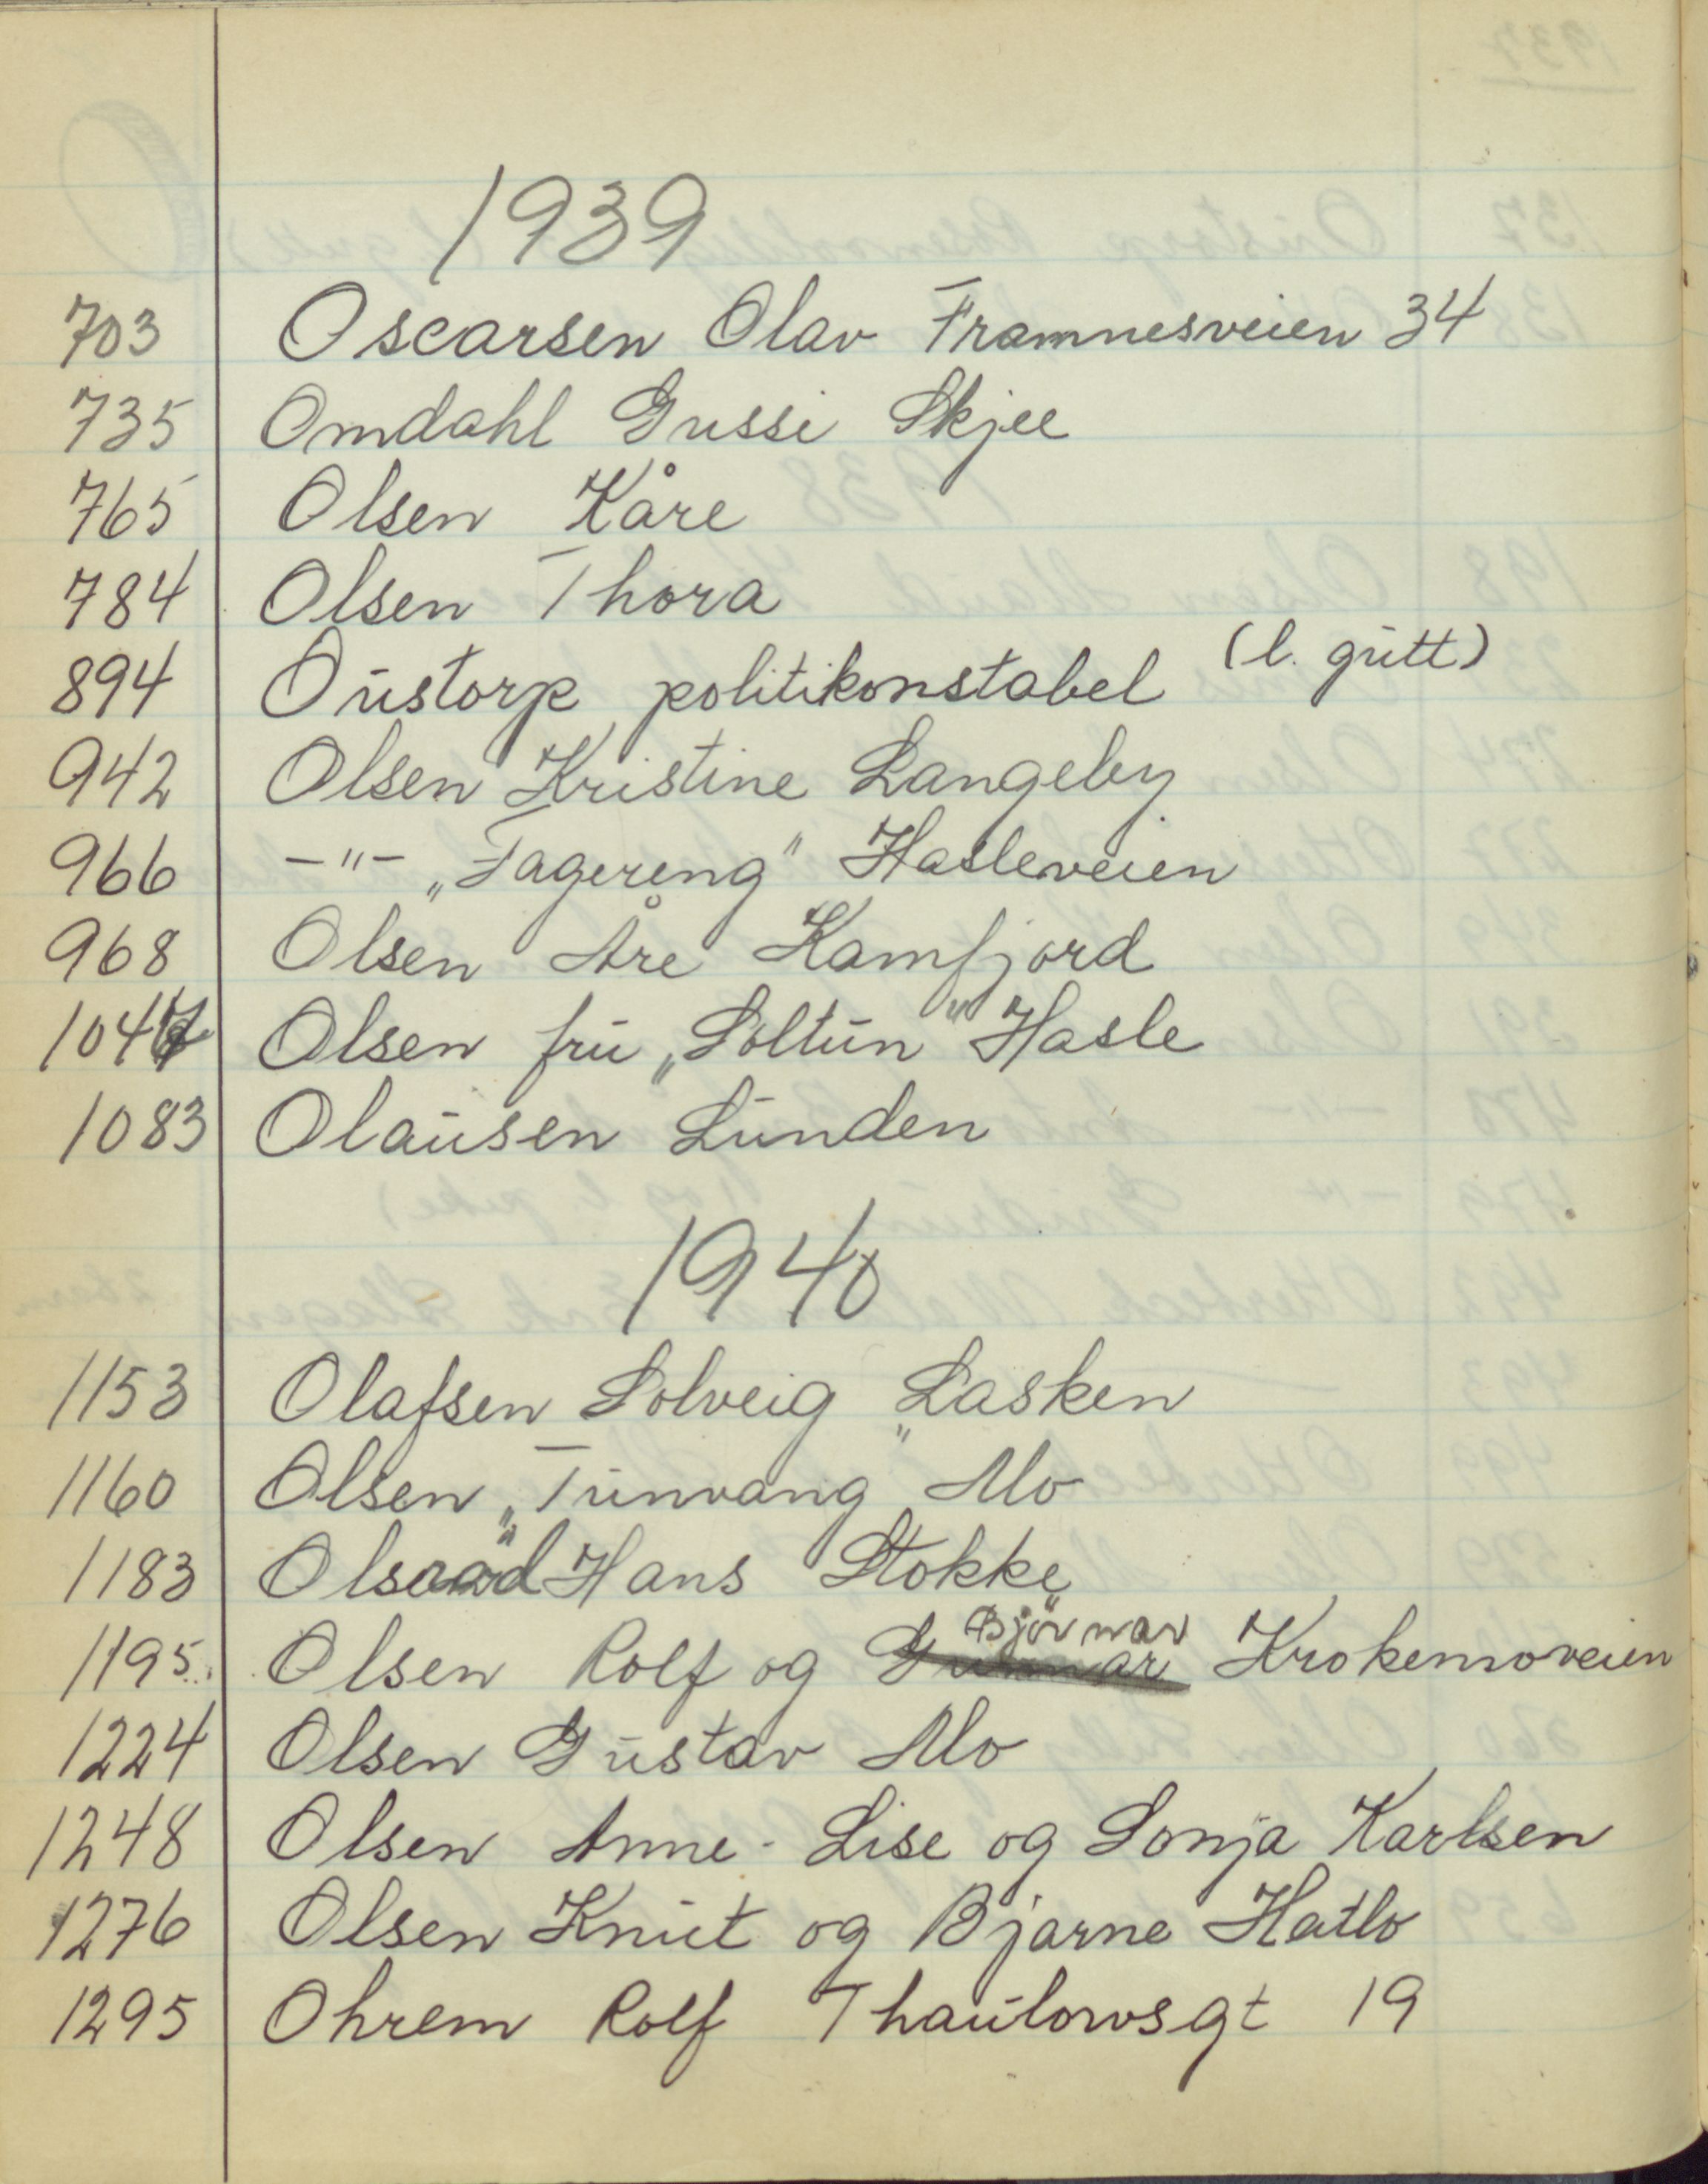 1939
703 Oscarsen Olav Framnesveien 34
735 Omdahl Gussi Skjee
765 Olsen Kåre
784 Olsen Thora
894 Oustorp politikonstabel (l. gutt)
942 Olsen Kristine Langeby
966 -"- „Fagereng" Hasleveien
968 Olsen Åre Kamfjord
1047 Olsen fru „Soltun" Hasle
1083 Olausen Lunden
1940
1153 Olafsen Solveig „Lasken
1160 Olsen „Tunvang" Mo
1183 Olsrød Hans Stokke
1195 Olsen Rolf og Gunnar Björnar Krokemoveien
1224 Olsen Gustav Mo
1248 Olsen Anne-Lise og Sonja Karlsen
1276 Olsen Knut og Bjarne Hatlo
1295 Ohrem Rolf Thaulowsgt 19